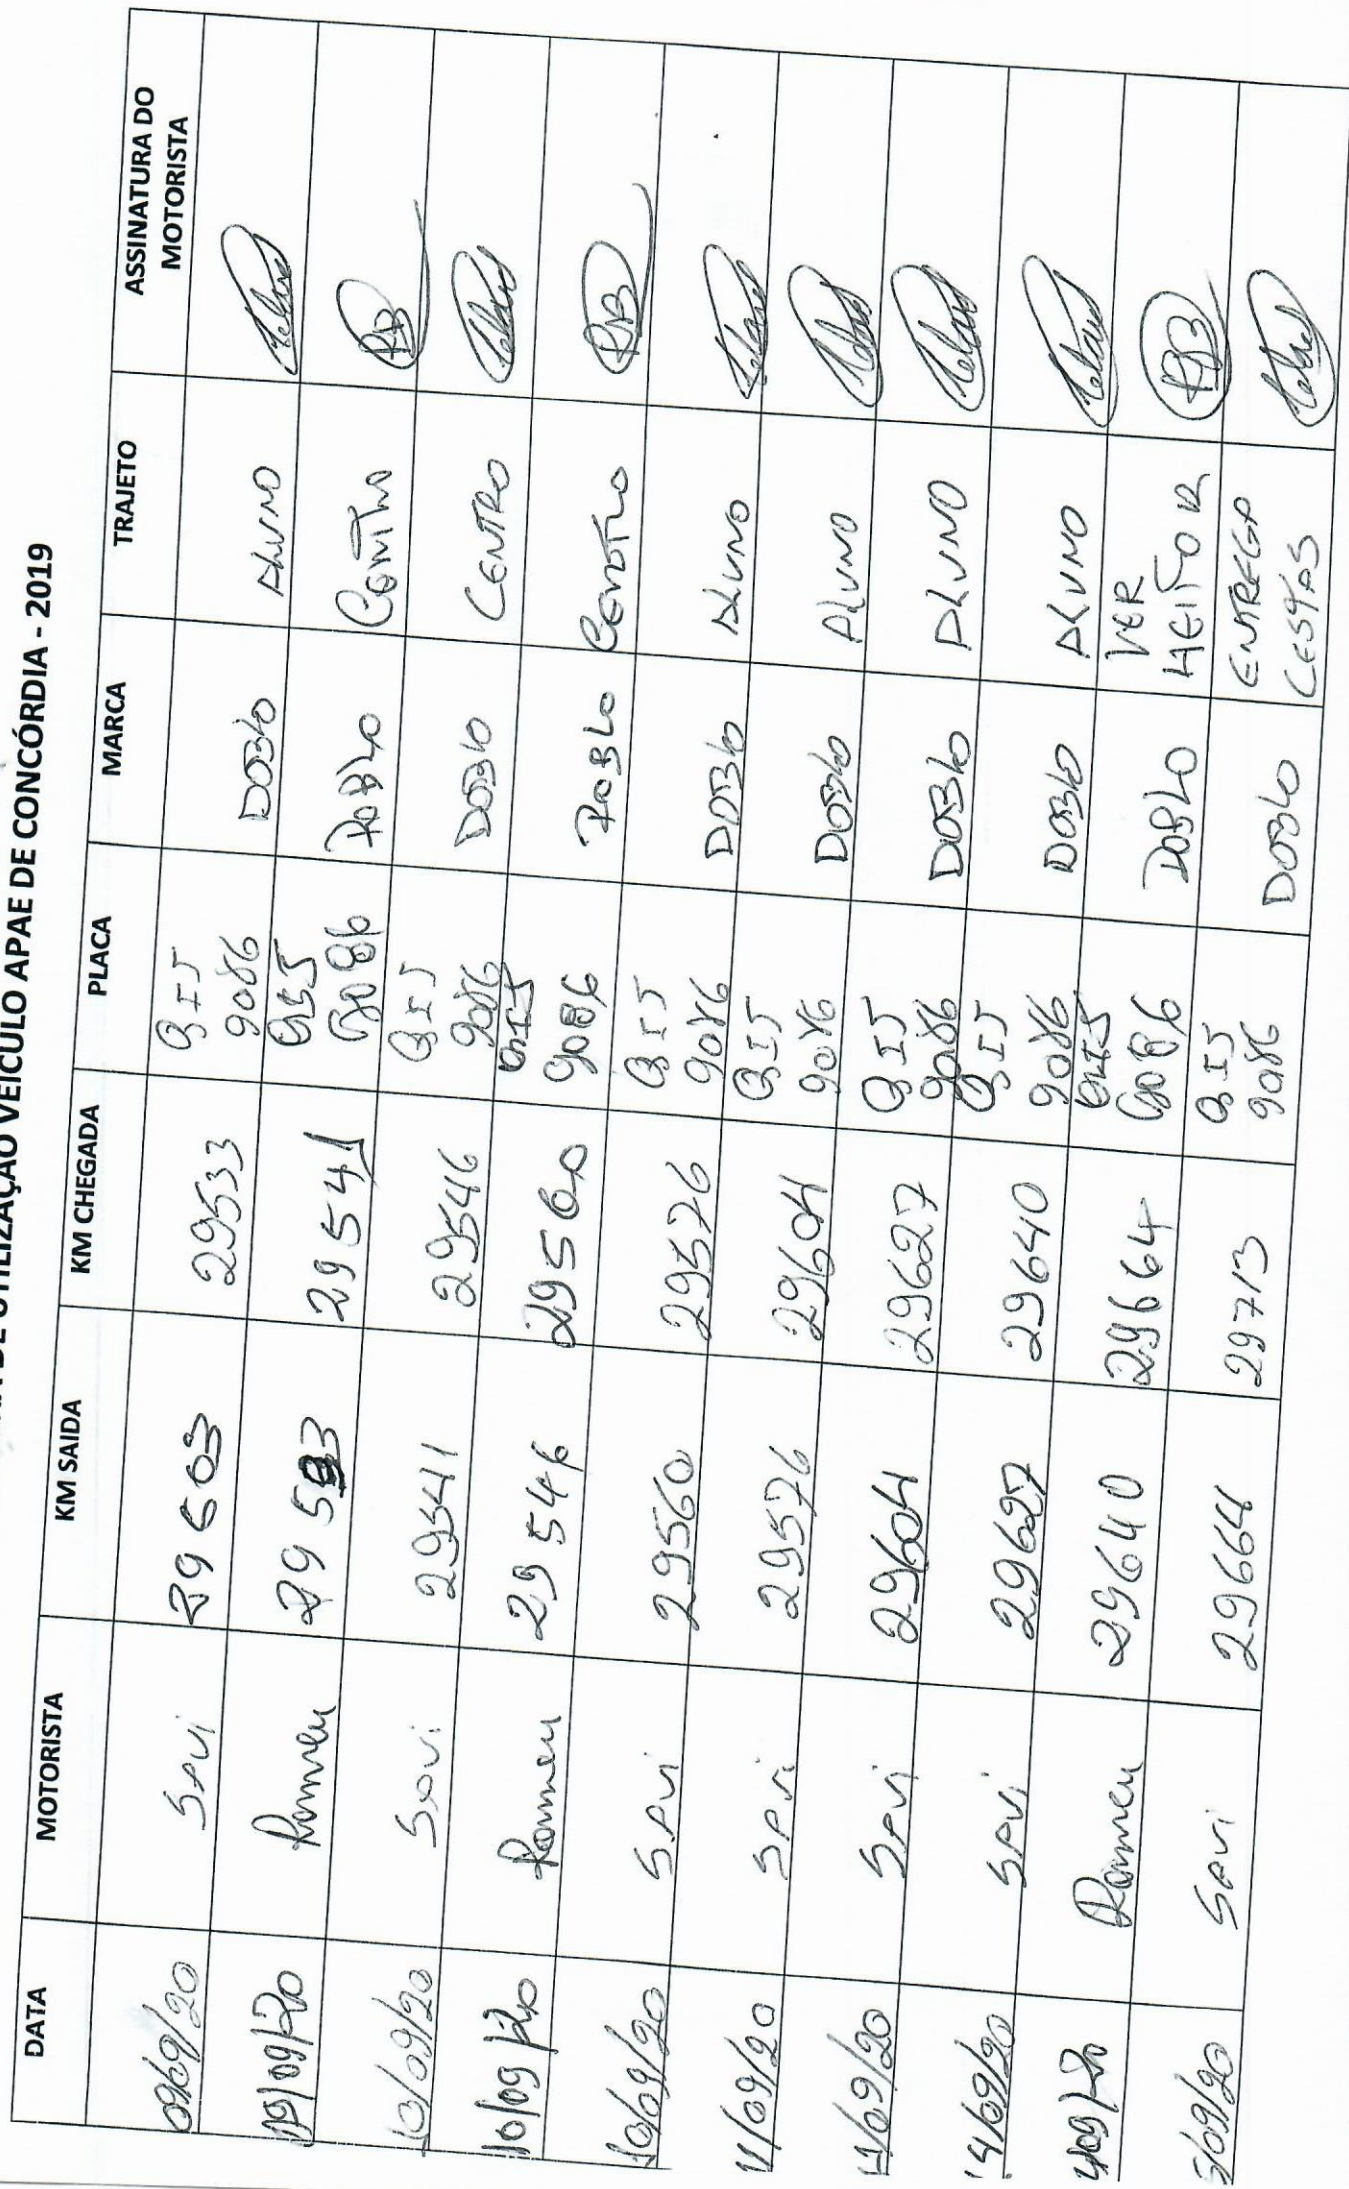 DE UTILIZAÇÃO VEÍCULO APAE DE CONCÓRDIA - 2019
DATA MOTORISTA KM SAIDA KM CHEGADA PLACA MARCA TRAJETO ASSINATURA DO MOTORISTA
09/09/20 SAVI 29503 29533 QIJ 9086 DOBLO ALUNO
09/09/20 Romeu 29533 29541 QIJ 9086 DOBLO Centro
10/09/20 SAVI 29541 29546 QIJ 9086 DOBLO CENTRO
10/09/20 Romeu 29546 29560 QIJ 9086 DOBLO Centro
10/09/20 SAVI 29560 29576 QIJ 9086 DOBLO ALUNO
11/09/20 SAVI 29576 29604 QIJ 9086 DOBLO ALUNO
/09/20 SAVI 29604 29627 QIJ 9086 DOBLO ALUNO
14/09/20 SAVI 29627 29640 QIJ 9086 DOBLO ALUNO
4/09/20 Romeu 29640 29664 QIJ 9086 DOBLO VER HEITOR
5/09/20 SAVI 29664 29713 QIJ 9086 DOBLO ENTREGA CESTAS